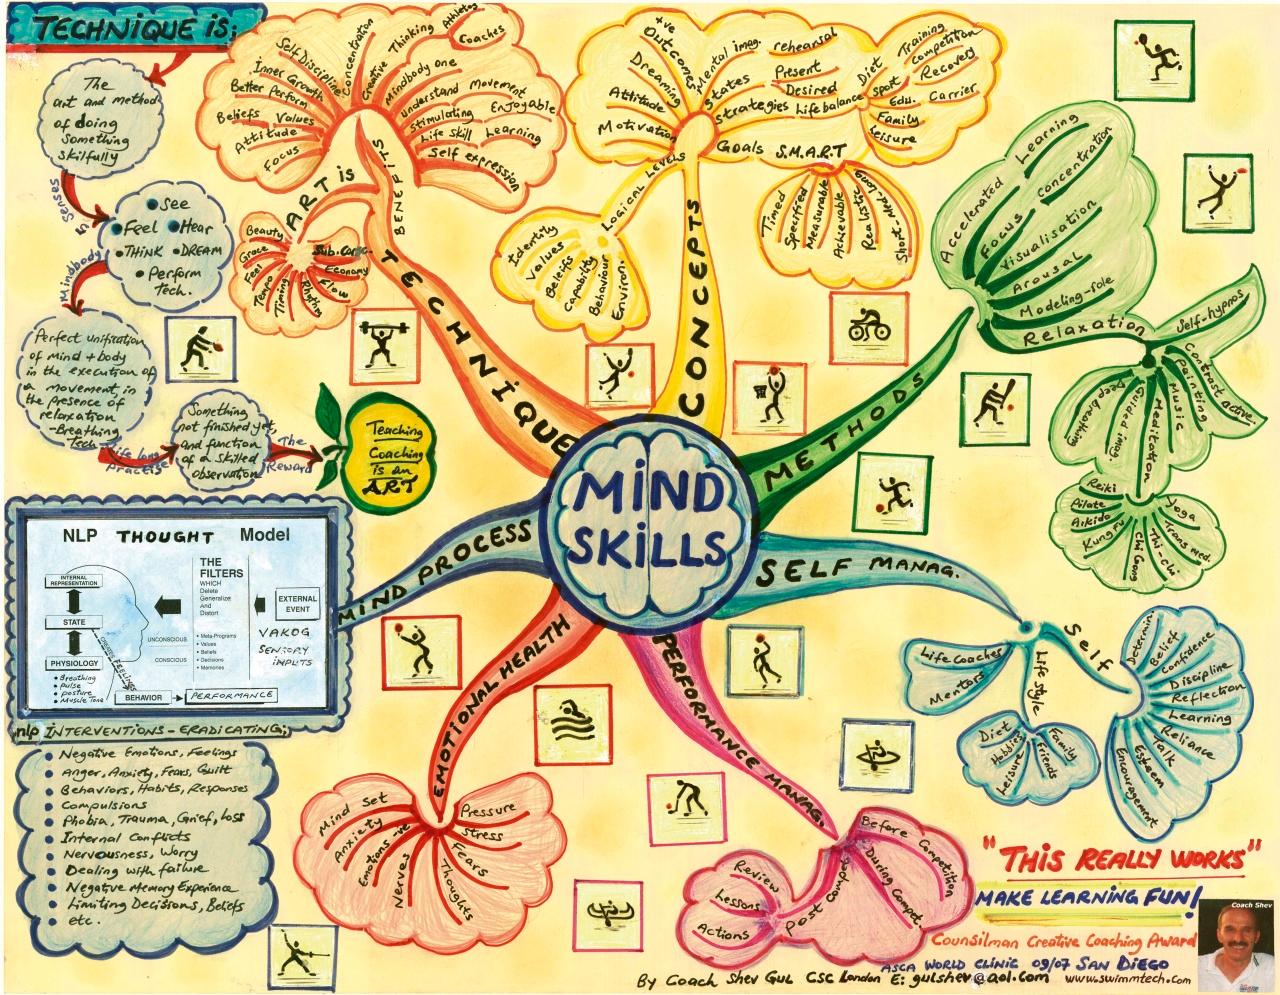 TECHNIQUE iS;
The
art and method
of doing
Something
skilfully
5 senses
See
Feel
Hear
THINK
DREAM
Perform
Tech.
Mindbody
Perfect unification
of Mind + body
in the execution of
a movement, in
the presence of
relaxation
-Breathing
Tech
Life long
practise
Something
not finished yet,
and function
of a skilled
observation
The
Reward
Teaching
Coaching
is an
ART
MiND
SKiLLS
TECHNiQUE
ART iS
BENEFITS
Focus
Attitude
Beliefs
Values
Better Perform
Inner Growth
Self Discipline
Concentration
Creative
Thinking
Athletes
Coaches
Mindbody one
understand
Movement
Stimulating
Enjoyable
Life skill
Learning
Self expression
Beauty
Grace
Feel
Tempo
Timing
Rhythm
Flow
Economy
CONCEPTS
Motivation
Attitude
Dreaming
+ve
Outcomes
Mental imag.
rehearsal
States
Present
Desired
Strategies
Life balance
Diet
Sport
Training
Competition
Recovery
Edu.
Carrier
Family
Leisure
Goals
S.M.A.R.T
Timed
Specified
Measurable
Achievable
Realistic
Short-Med-Long
LOGICAL LEVELS
Identity
Values
Beleifs
capability
Behaviour
Environ.
METHODS
Accelerated
Learning
Focus
concentration
Visualisation
Arousal
Modeling-role
Relaxation
Self-hypnos
Contrast active
painting
Music
Meditation
Guided imag.
Deep breathing
Reiki
Pilate
Aikido
Kung Fu
Chi Gong
Thi-chi
Trans med.
Yoga
SELF MANAG.
Life Coaches
Mentors
Life style
Diet
Hobbies
Leisure
Friends
Family
Self
Determin.
Belief
Confidence
Discipline
Reflection
Learning
Reliance
Talk
Esteem
Encouragement
PERFORMANCE MANAG.
Before
Competition
During Compet.
Post Compet.
Review
Lessons
Actions
EMOTIONAL HEALTH
Mind Set
Anxiety
Emotions -ve
Nerves
Thoughts
Fears
Stress
Pressure
MIND PROCESS
NLP THOUGHT Model
INTERNAL
REPRESENTATION
STATE
PHYSIOLOGY
• Breathing
• pulse
• posture
• Muscle Tone
CREATES FEELINGS
THE
FILTERS
WHICH
Delete
Generalize
And
Distort
UNCONSCIOUS
CONSCIOUS
• Meta-Programs
• Values
• Beliefs
• Decisions
• Memories
EXTERNAL
EVENT
VAKOG
SENSORY
INPUTS
BEHAVIOR
PERFORMANCE
nlp INTERVENTIONS - ERADICATING;
Negative Emotions, Feelings
Anger, Anxiety, Fears, Guilt
Behaviors, Habits, Responses
Compulsions
Phobia, Trauma, Grief, Loss
Internal Conflicts
Nervousness, Worry
Dealing with failure
Negative Memory Experience
Limiting Decisions, Beliefs
etc.
"THIS REALLY WORKS"
MAKE LEARNING FUN!
Coach Shev
Counsilman Creative Coaching Award
ASCA WORLD CLINIC 09/07 SAN DIEGO
By Coach Shev Gul CSC London E: gulshev@aol.com www.swimmtech.com